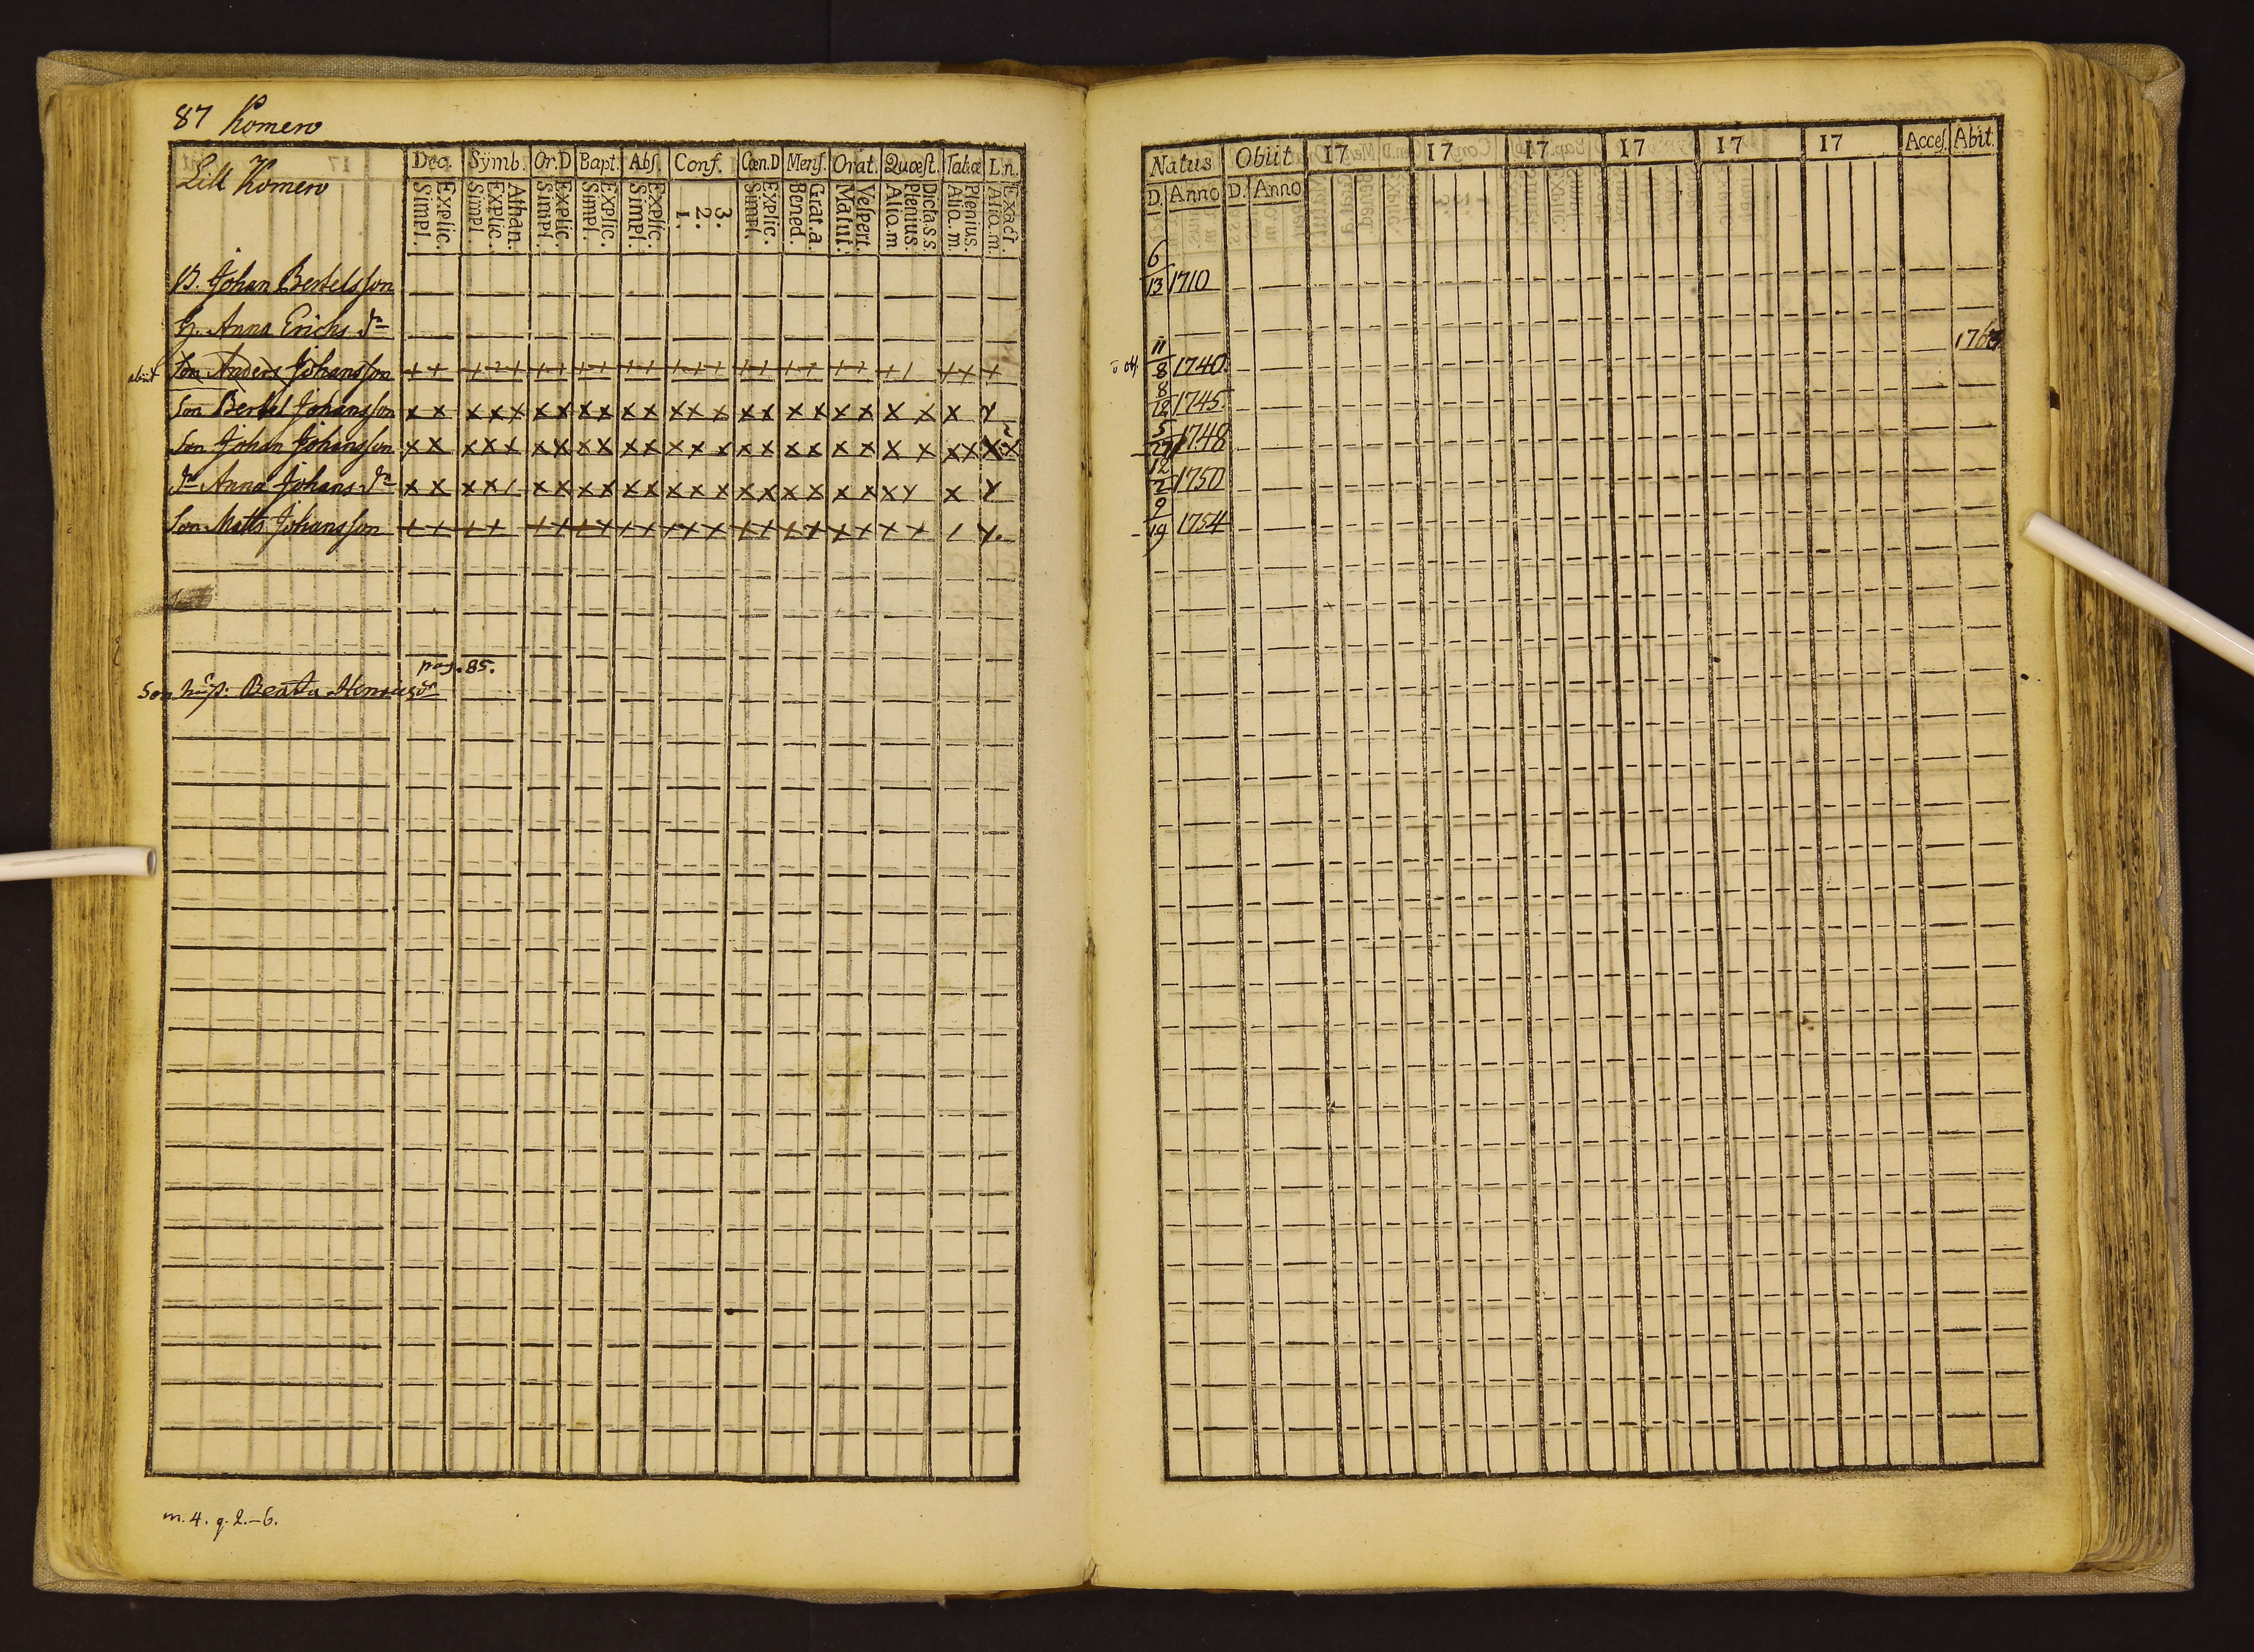 87 Komero
Lill Komero
Dec. Symb. Or.D Bapt. Abſ. Conf. Cœn.D Menſ. Orat. Quœſt. Tabœ L.n.
Simpl. Explic. Simpl. Explic. Athan. Simpl. Explic. Simpl. Explic. Simpl. Explic. 1. 2. 3. Simpl. Explic. Bened. Grat.a. Matut. Veſpert. Alio.m Plenius. Dicta.s.s. Alio.m. Plenius. Alio.m. Exact.
B. Johan Bertelsſon
H. Anna Erichs dr
abiit Son Anders Johansſon ++ +++ ++ ++ ++ +++ ++ ++ ++ +/ ++ +
Son Bertel Johansſon x x x x x x x x x x x x x x x x x x x x x x x x
Son Johan Johansſon x x x x x x x x x x x x x x x x x x x x x x x x x x
dr Anna Johans dr x x x x / x x x x x x x x x x x x x x x x x x x
Son Matts Johansſon + + + + + + + + + + + + + + + + + + + + + / x.
pag. 85.
Son hust: Beata Henricsdr
m. 4. q. 2.–6.
Natus Obiit 17 17 17 17 17 17 Acceſ. Abit.
D. Anno D. Anno
6/13 1710
11/8 1740 1763
8/18 1745.
5/27 1748
12/2 1750
9/19 1754